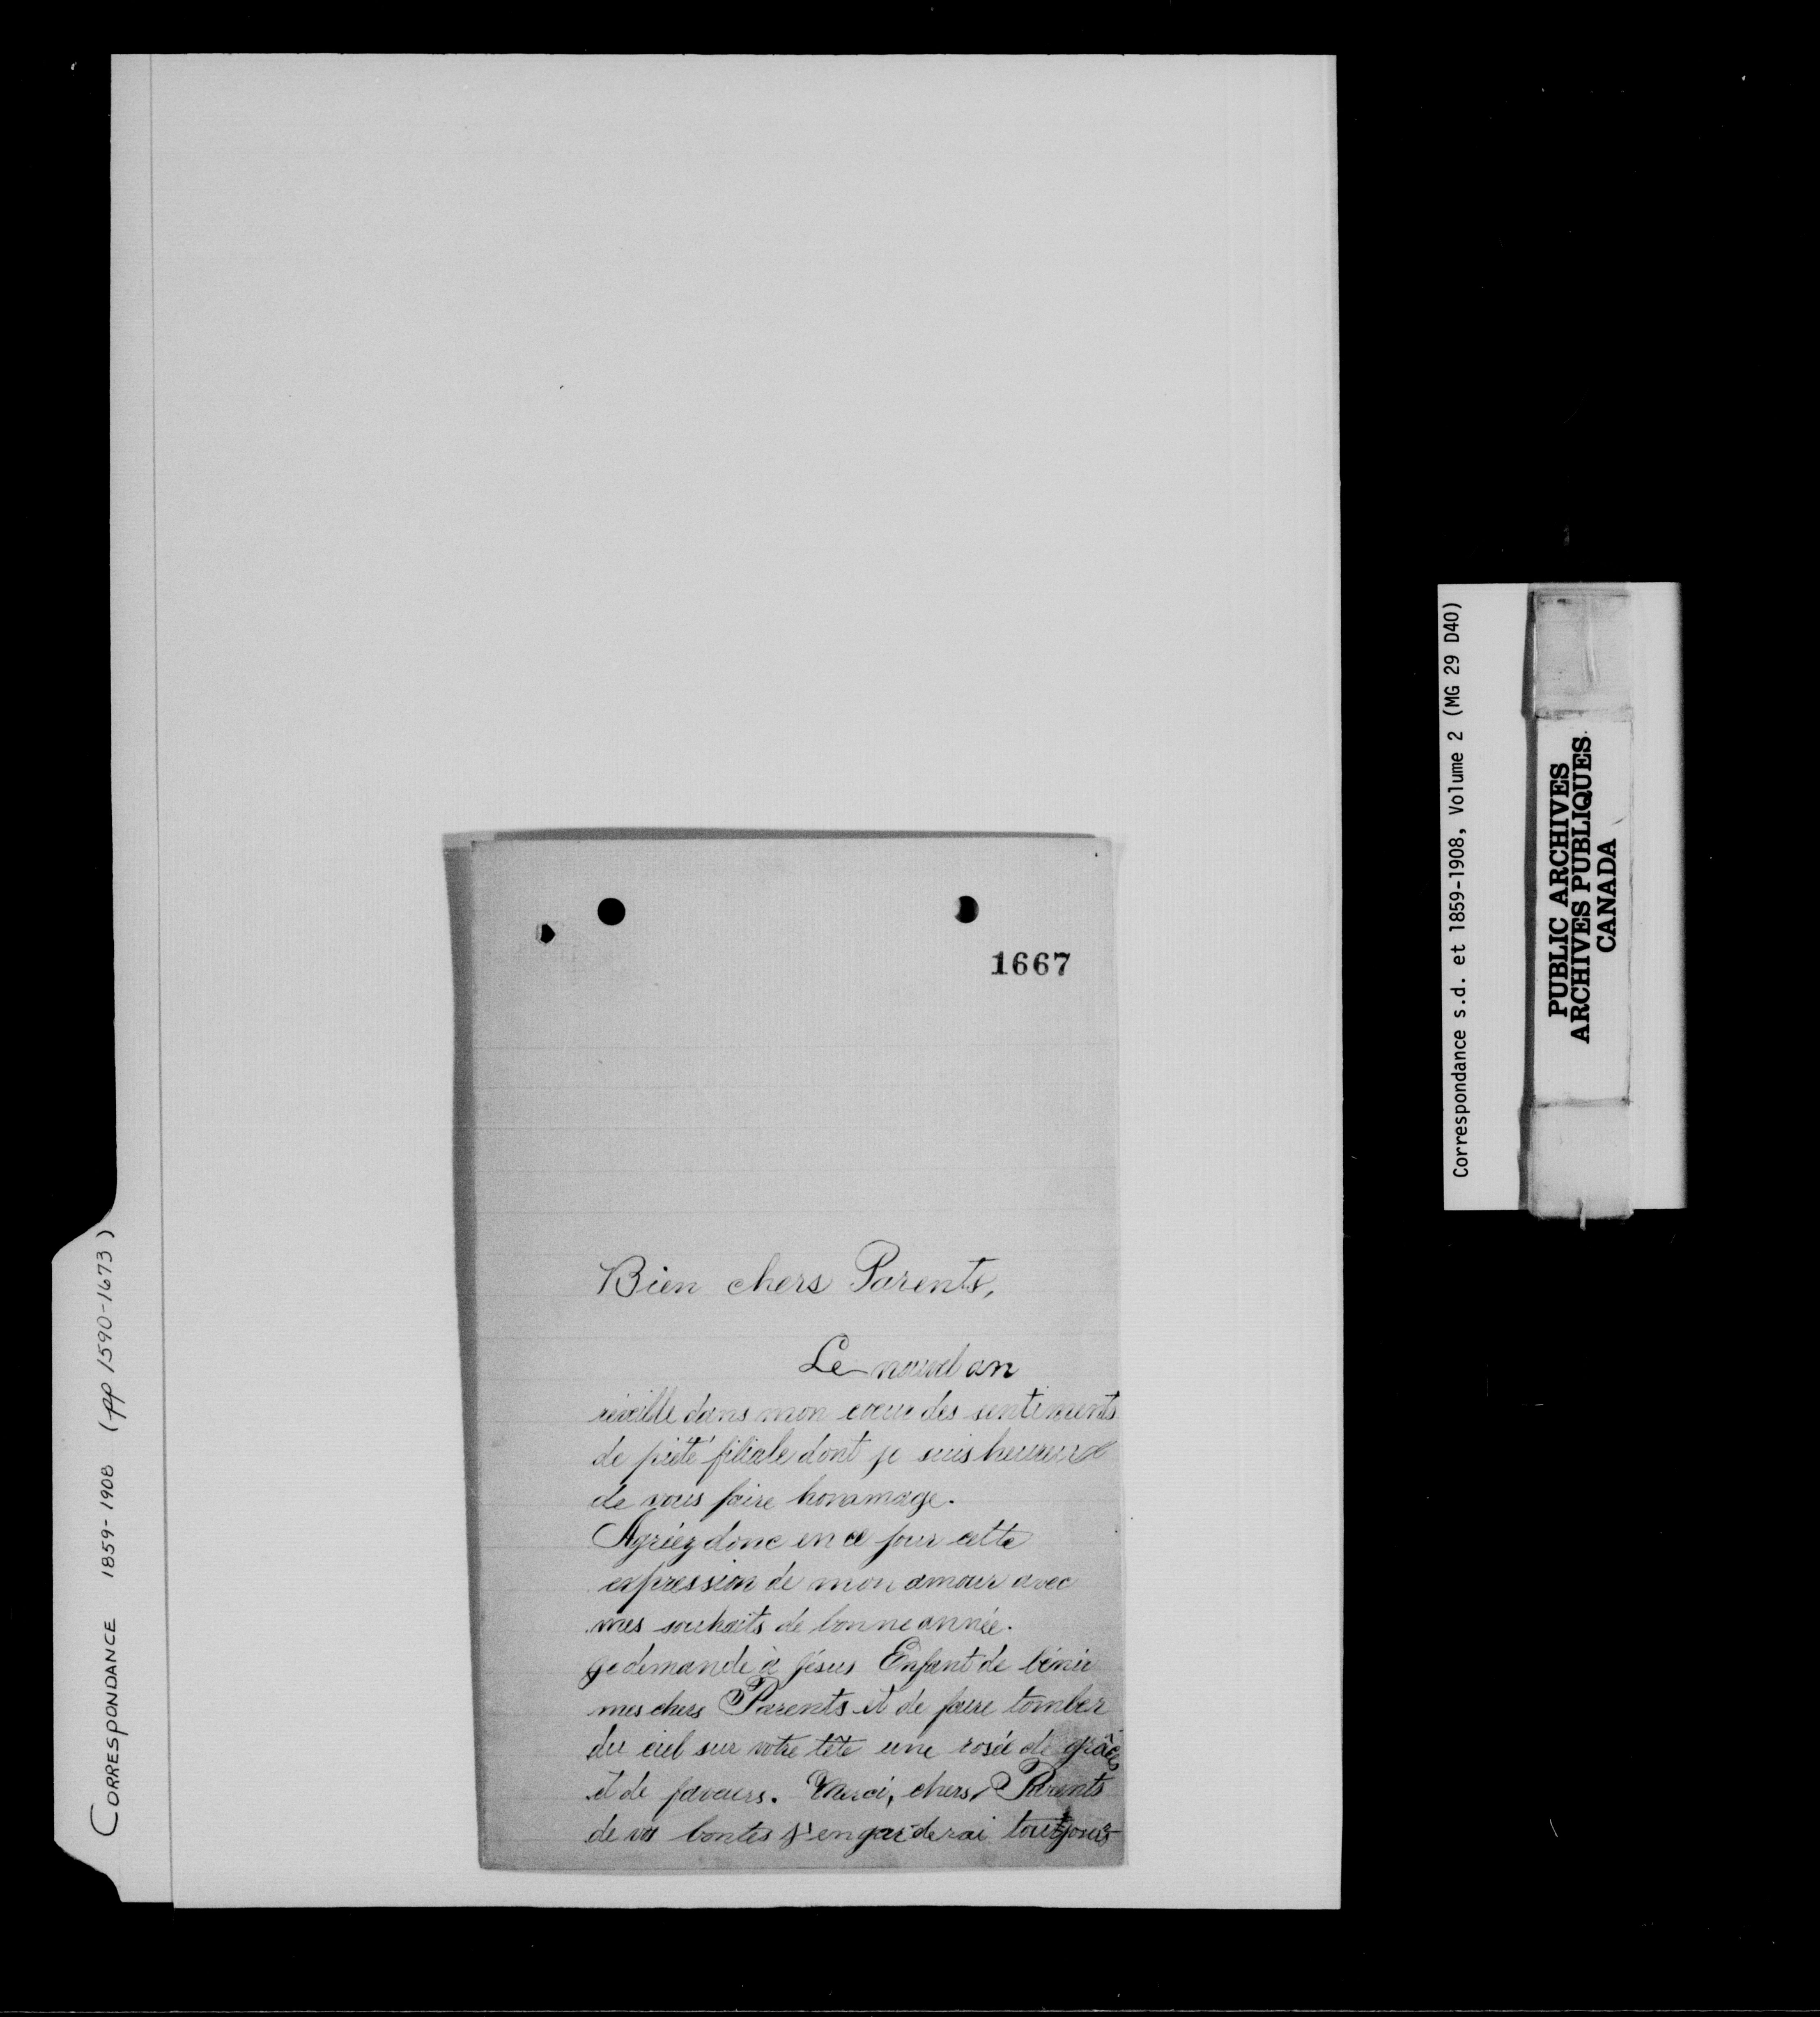 CORRESPONDANCE 1859-1908 (pp 1590-1673)
1667
Bien chers Parents,
Le nouvel an
réveille dans mon coeur des sentiments
de piété filiale dont je suis heureuse
de vous faire hommage.
Agréez donc en ce jour cette
expression de mon amour avec
mes souhaits de bonne année.
Je demande à Jésus Enfant de bénir
mes chers Parents et de faire tomber
du ciel sur votre tête une rosée de grâces
et de faveurs. Merci, chers Parents
de vos bontés j'en garderai toutjours
Correspondance s.d. et 1859-1908, Volume 2 (MG 29 D40)
PUBLIC ARCHIVES
ARCHIVES PUBLIQUES
CANADA